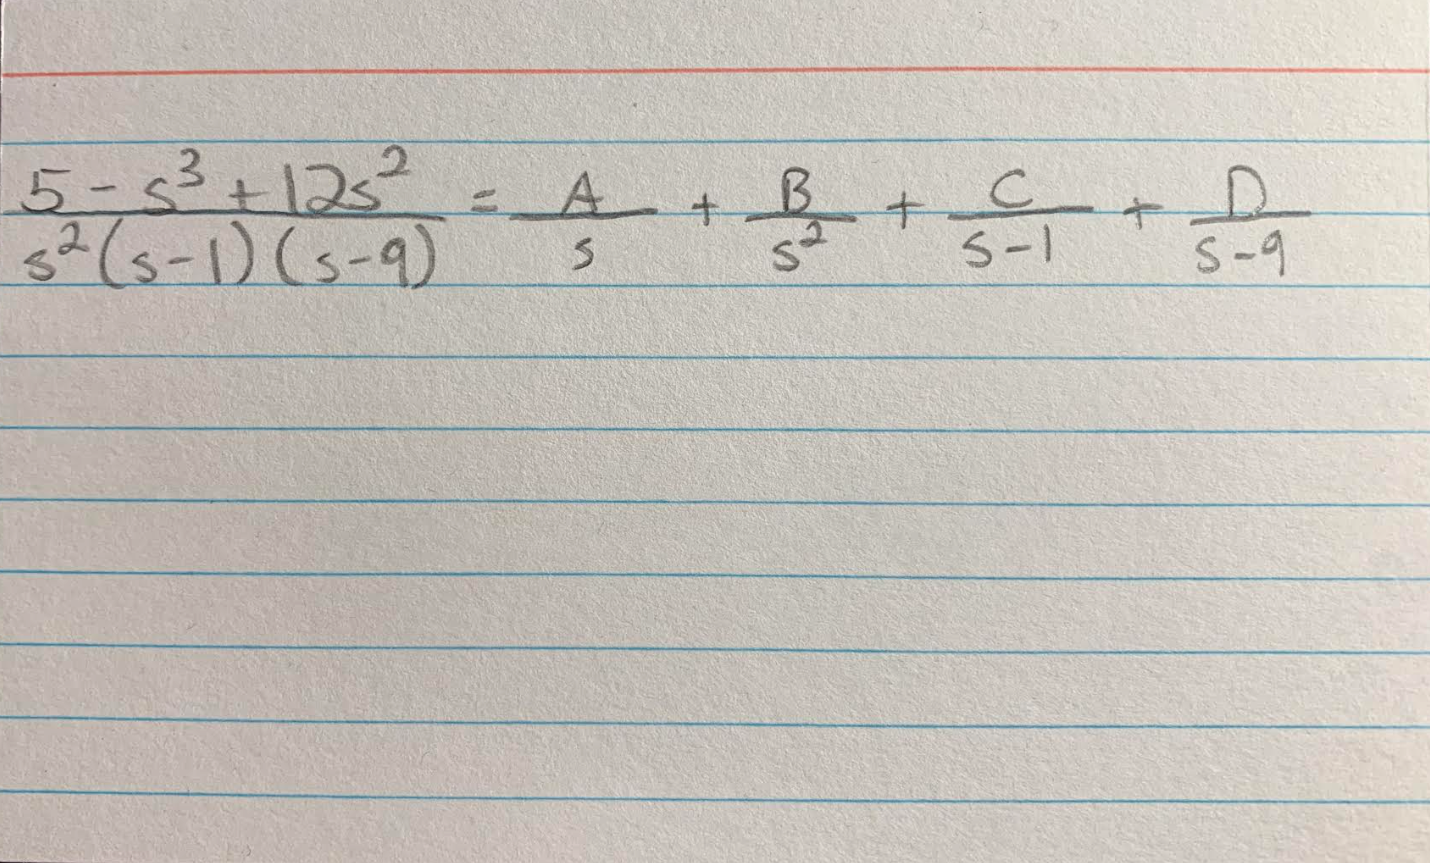 5 - s³ + 12s² / s²(s-1)(s-9) = A/s + B/s² + C/s-1 + D/s-9